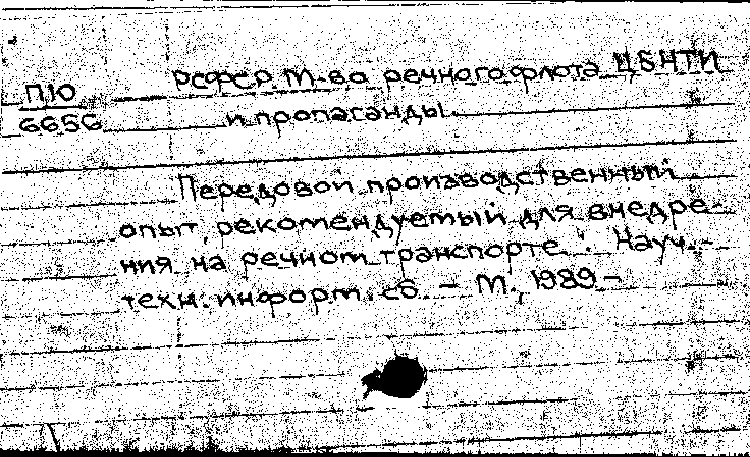 РСФСР М-во речного флота ЦБНТИ
П10
6656
и пропаганды.
Передовой производственный
опыт, рекомендуемый для внедре-
ния на речном транспорте: Науч.-
техн. информ. сб. - М., 1989 -